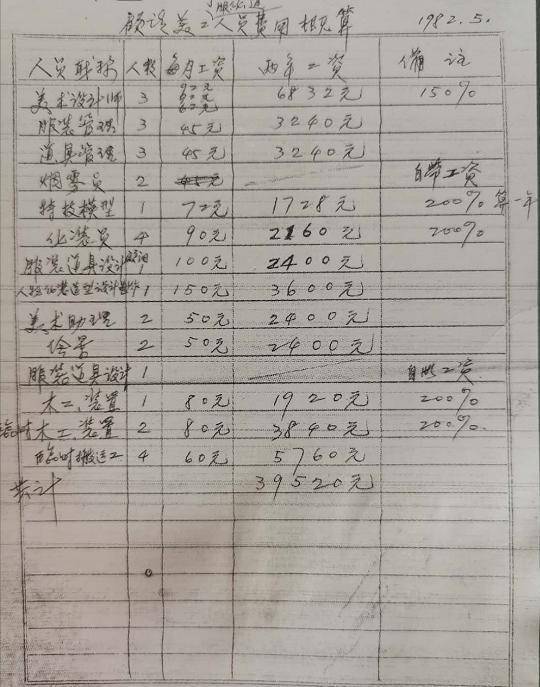 服化道
顾谈美工人员费用概算 1982.5.
人员职称 人数 每月工资 两年工资 備注
美术设计师 3 6832元 150%
服装管理 3 45元 3240元
道具管理 3 45元 3240元
烟雾员 2 45元 自带工资
特技模型 1 72元 1728元 200% 算一年
化装员 4 90元 2160元 200%
服装道具设计 1 100元 2400元
人物化装造型设计 1 150元 3600元
美术助理 2 50元 2400元
绘景 2 50元 2400元
服装道具设计 1 自带工资
木工、装置 1 80元 1920元 200%
临时木工、装置 2 80元 3840元 200%
临时搬运工 4 60元 5760元
共计 39520元